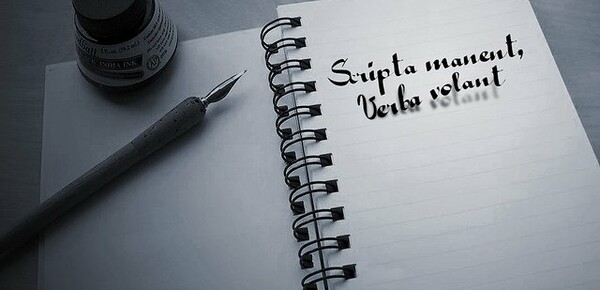 INDIA INK
Scripta manent,
Verba volant